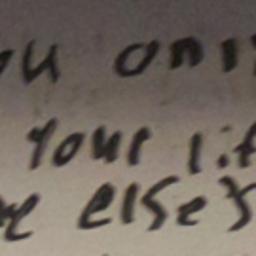 ou onl
your lif
e else's